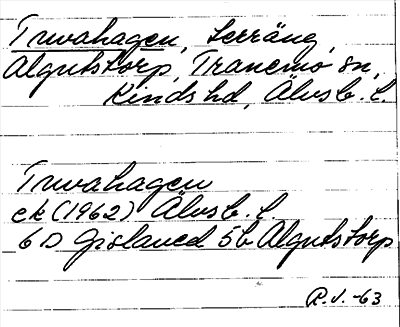 Truvahagen, terräng
Algutstorp, Tranemo sn,
Kinds hd, Älvsb. l.
Truvahagen
ek (1962) Älvsb. l.
6 D Gislaved 5b Algutstorp
R.J.-63